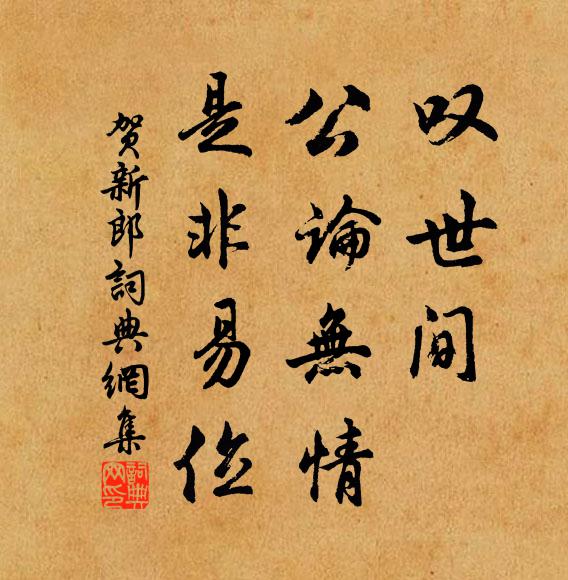 叹世间
公論無情
是非易位
贺新郎詞典網集
詞典网印